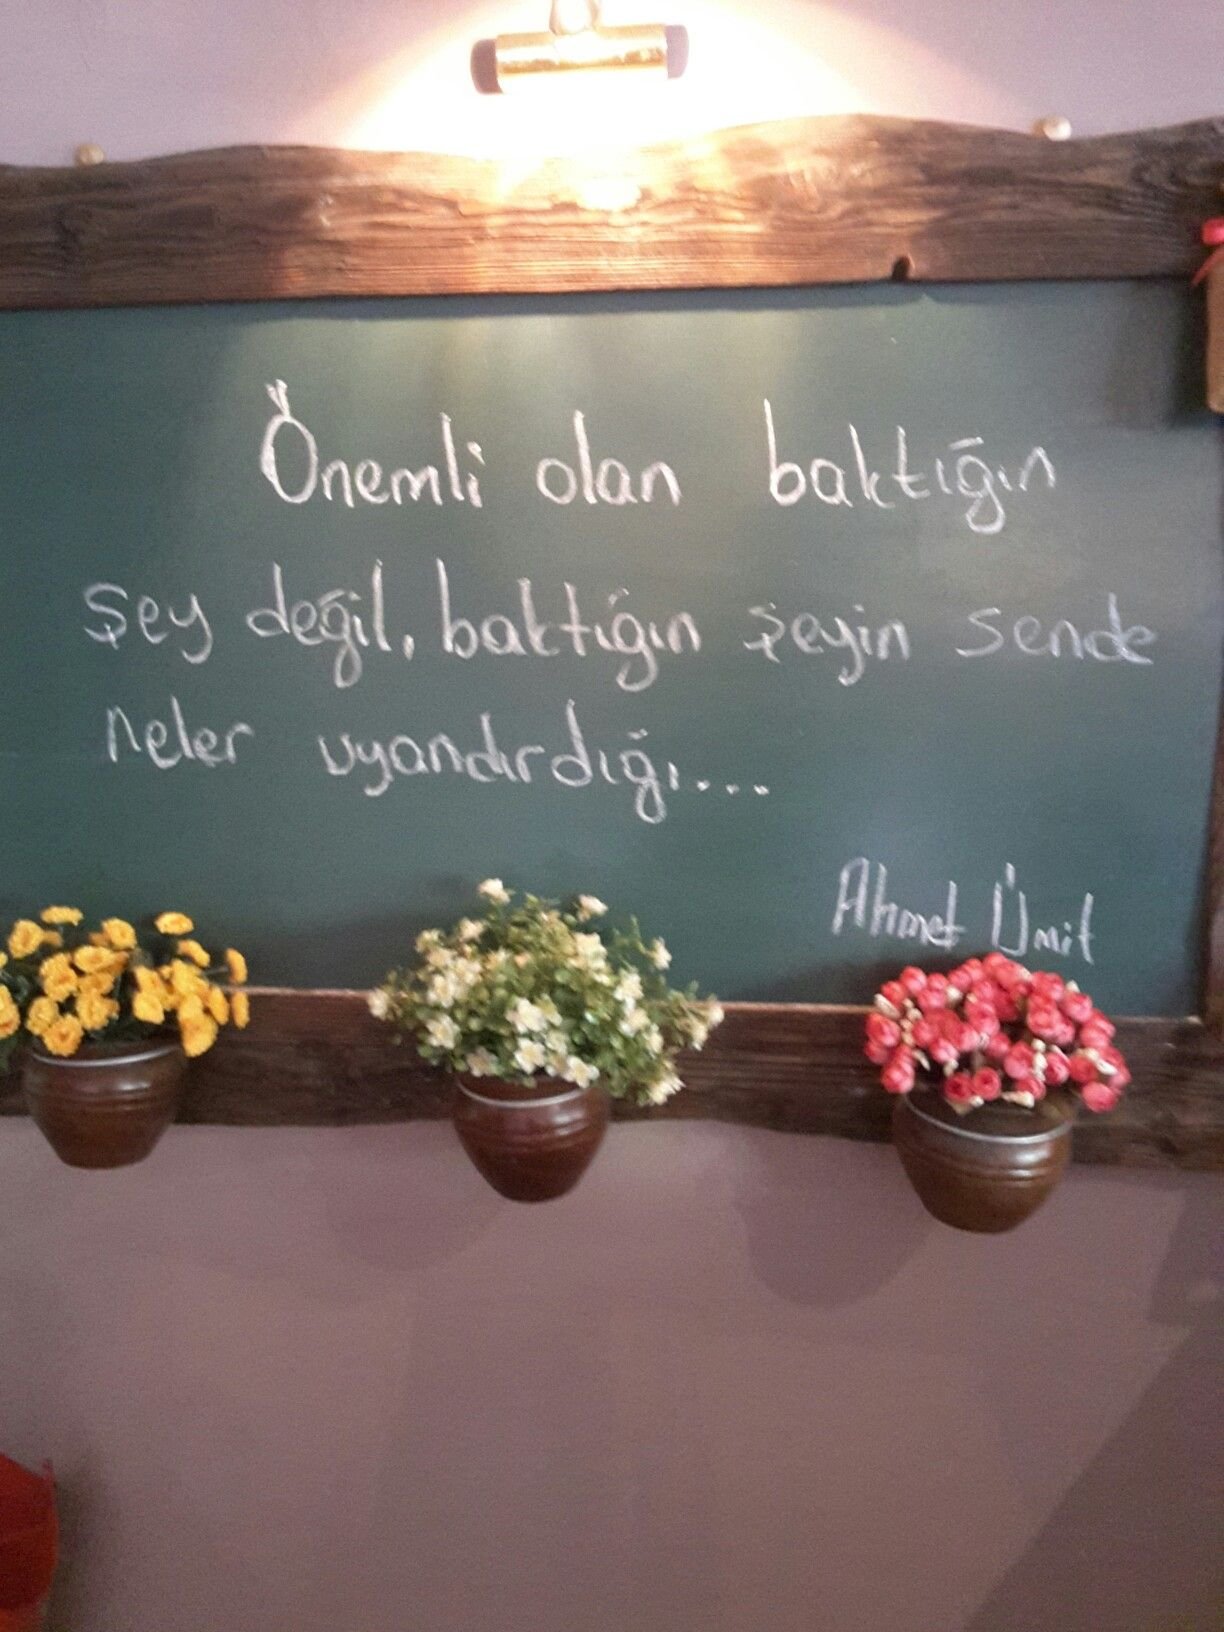 Önemli olan baktığın
şey değil, baktığın şeyin sende
neler uyandırdığı....
Ahmet Ümit